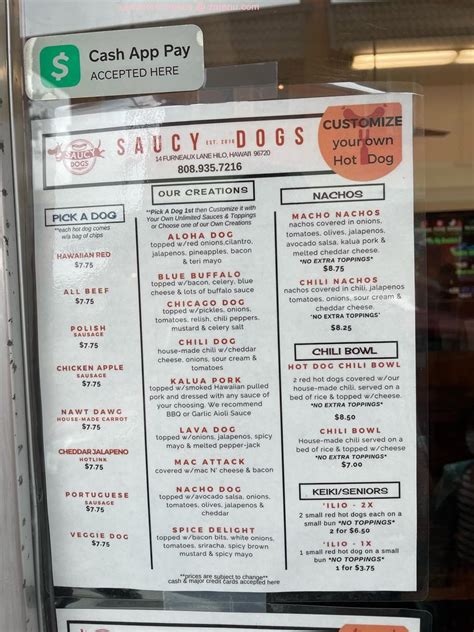 Cash App Pay
ACCEPTED HERE
SAUCY DOGS
EST. 2016
14 FURNEAUX LANE HILO, HAWAI'I 96720
808.935.7216
SAUCY
DOGS
CUSTOMIZE
your own
Hot Dog
PICK A DOG
**each hot dog comes
w/a bag of chips
HAWAIIAN RED
$7.75
ALL BEEF
$7.75
POLISH
SAUSAGE
$7.75
CHICKEN APPLE
SAUSAGE
$7.75
NAWT DAWG
HOUSE-MADE CARROT
$7.75
CHEDDAR JALAPENO
HOTLINK
$7.75
PORTUGUESE
SAUSAGE
$7.75
VEGGIE DOG
$7.75
OUR CREATIONS
**Pick A Dog 1st then Customize it with
Your Own Unlimited Sauces & Toppings
or Choose one of our Own Creations
ALOHA DOG
topped w/red onions,cilantro,
jalapenos, pineapples, bacon
& teri mayo
BLUE BUFFALO
topped w/bacon, celery, blue
cheese & lots of buffalo sauce
CHICAGO DOG
topped w/pickles, onions,
tomatoes, relish, chili peppers,
mustard & celery salt
CHILI DOG
house-made chili w/cheddar
cheese, onions, sour cream &
tomatoes
KALUA PORK
topped w/smoked Hawaiian pulled
pork and dressed with any sauce of
your choosing. We recommend
BBQ or Garlic Aioli Sauce
LAVA DOG
topped w/onions, jalapenos, spicy
mayo & melted pepper-jack
MAC ATTACK
covered w/mac N' cheese & bacon
NACHO DOG
topped w/avocado salsa, onions,
tomatoes, olives, jalapenos &
cheddar
SPICE DELIGHT
topped w/bacon bits, white onions,
tomatoes, sriracha, spicy brown
mustard & spicy mayo
NACHOS
MACHO NACHOS
nachos covered in onions,
tomatoes, olives, jalapenos,
avocado salsa, kalua pork &
melted cheddar cheese.
*NO EXTRA TOPPINGS*
$8.75
CHILI NACHOS
nachos covered in chili, jalapenos
tomatoes, onions, sour cream &
cheddar cheese.
*NO EXTRA TOPPINGS*
$8.25
CHILI BOWL
HOT DOG CHILI BOWL
2 red hot dogs covered w/our
house-made chili, served on a
bed of rice & topped w/cheese.
*NO EXTRA TOPPINGS*
$8.50
CHILI BOWL
House-made chili served on a
bed of rice & topped w/cheese
*NO EXTRA TOPPINGS*
$7.00
KEIKI/SENIORS
'ILIO - 2X
2 small red hot dogs each on a
small bun *NO TOPPINGS*
2 for $6.50
'ILIO - 1X
1 small red hot dog on a small
bun *NO TOPPINGS*
1 for $3.75
**prices are subject to change**
cash & major credit cards accepted here